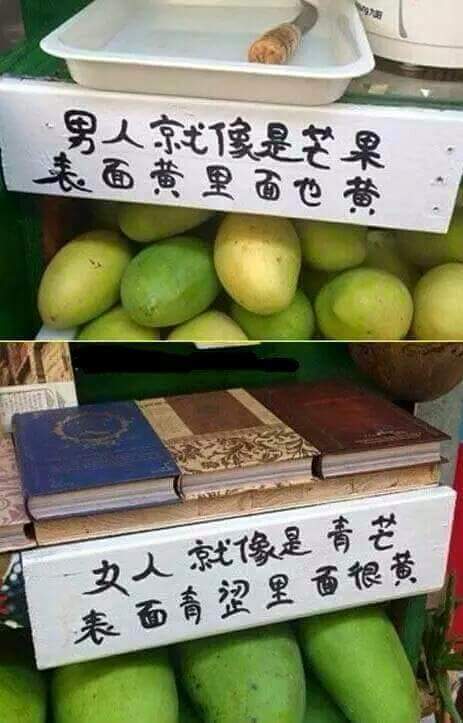 男人就像是芒果
表面黄里面也黄
女人就像是青芒
表面青涩里面很黄